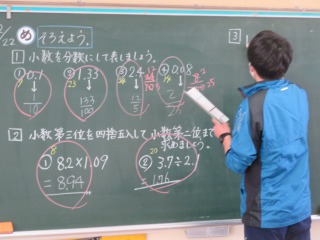 /22 め そろえよう。
1 小数を分数にして表しましょう。
① 0.1
② 1.33
③ 2.4
④ 0.08
1/10
133/100
12/5
2 小数第三位を四捨五入して小数第二位まで
求めましょう。
① 8.2×1.09
=8.94
② 3.7÷2.1
=1.76
3